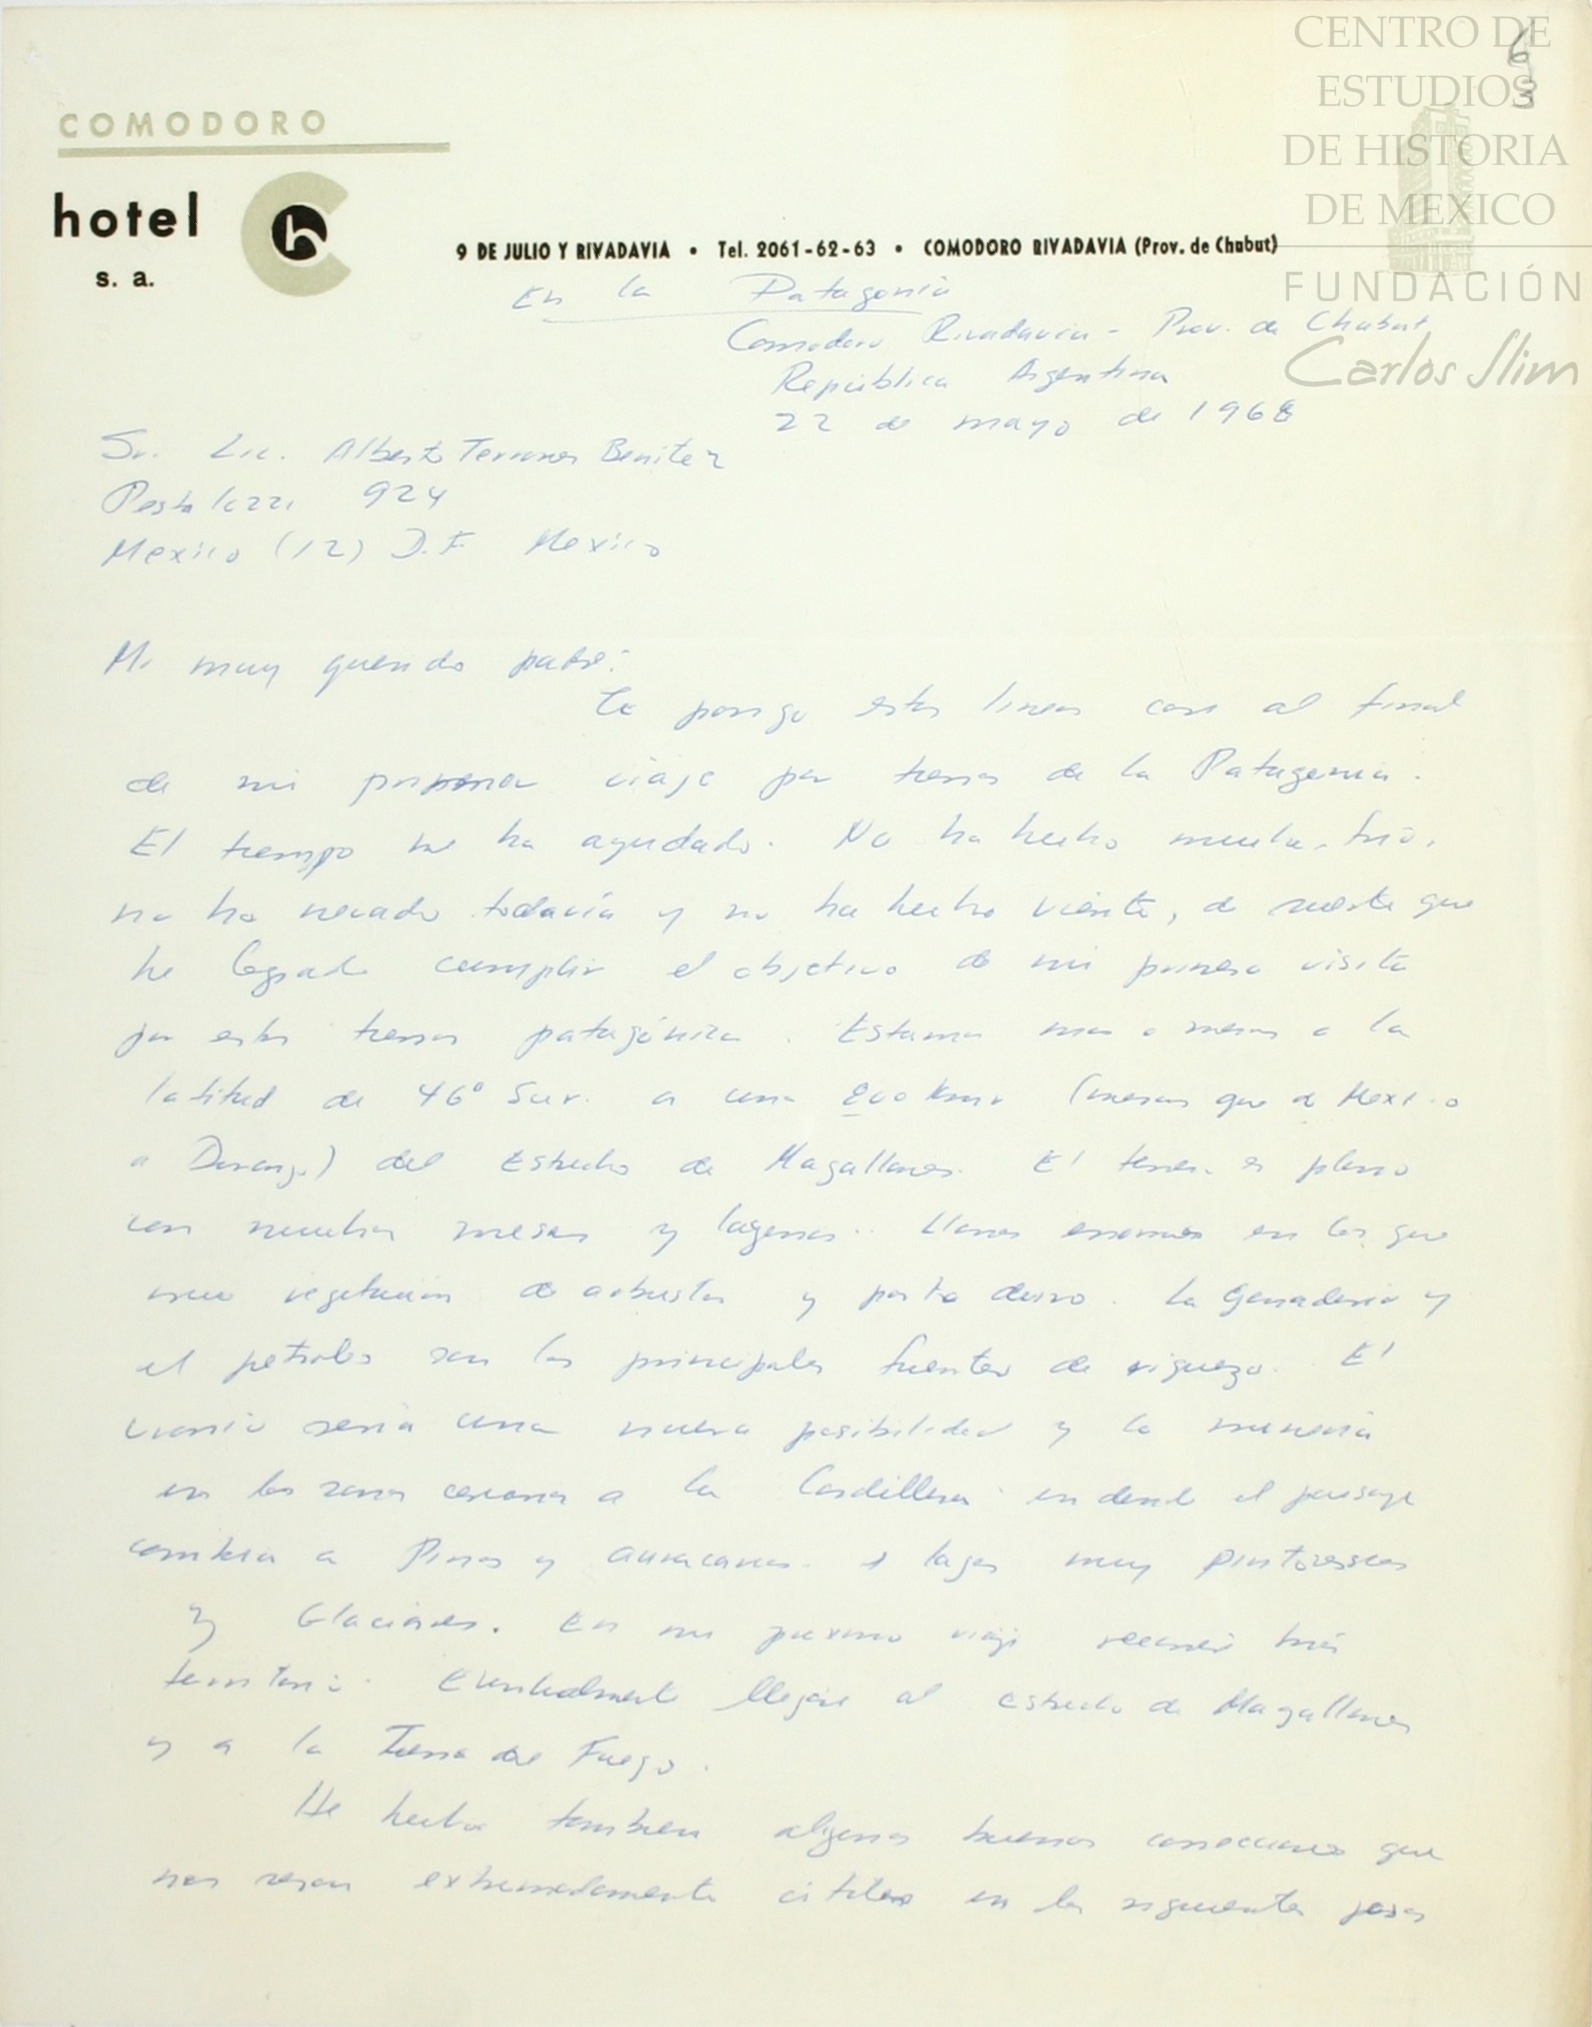 CENTRO DE
ESTUDIOS
DE HISTORIA
DE MEXICO
FUNDACIÓN
Carlos Slim
6
3
COMODORO
hotel
s. a.
9 DE JULIO Y RIVADAVIA • Tel. 2061-62-63 • COMODORO RIVADAVIA (Prov. de Chubut)
En la Patagonia
Comodoro Rivadavia - Prov. de Chubut
República Argentina
22 de mayo de 1968
Sr. Lic. Alberto Terrones Benitez
Pestalozzi 924
Mexico (12) D.F. Mexico
Mi muy querido padre:
Te pongo estas lineas casi al final
de mi primer viaje por tierras de la Patagonia.
El tiempo me ha ayudado. No ha hecho mucho frio,
no ha nevado todavía y no ha hecho viento, de suerte que
he logrado cumplir el objetivo de mi primera visita
por estas tierras patagónicas. Estamos mas o menos a la
latitud de 46° Sur. a unos 800 Kms (menos que de Mexico
a Durango) del Estrecho de Magallanes. El terreno es plano
con muchas mesas y lagunas. Llanos enormes en los que
vegetacion de arbustos y pasto duro. La Ganaderia y
el petroleo son las principales fuentes de riqueza. El
uranio seria una nueva posibilidad y la mineria
en las zonas cercanas a la Cordillera en donde el paisaje
cambia a Pinos y auracanas. y lagos muy pintorescos
y Glaciares. En mi proximo viaje recorreré más
territorio. Eventualmente llegare al estrecho de Magallanes
y a la Tierra del Fuego.
He hecho tambien algunas buenas conecciones que
nos seran extremadamente utiles en los siguientes pasos